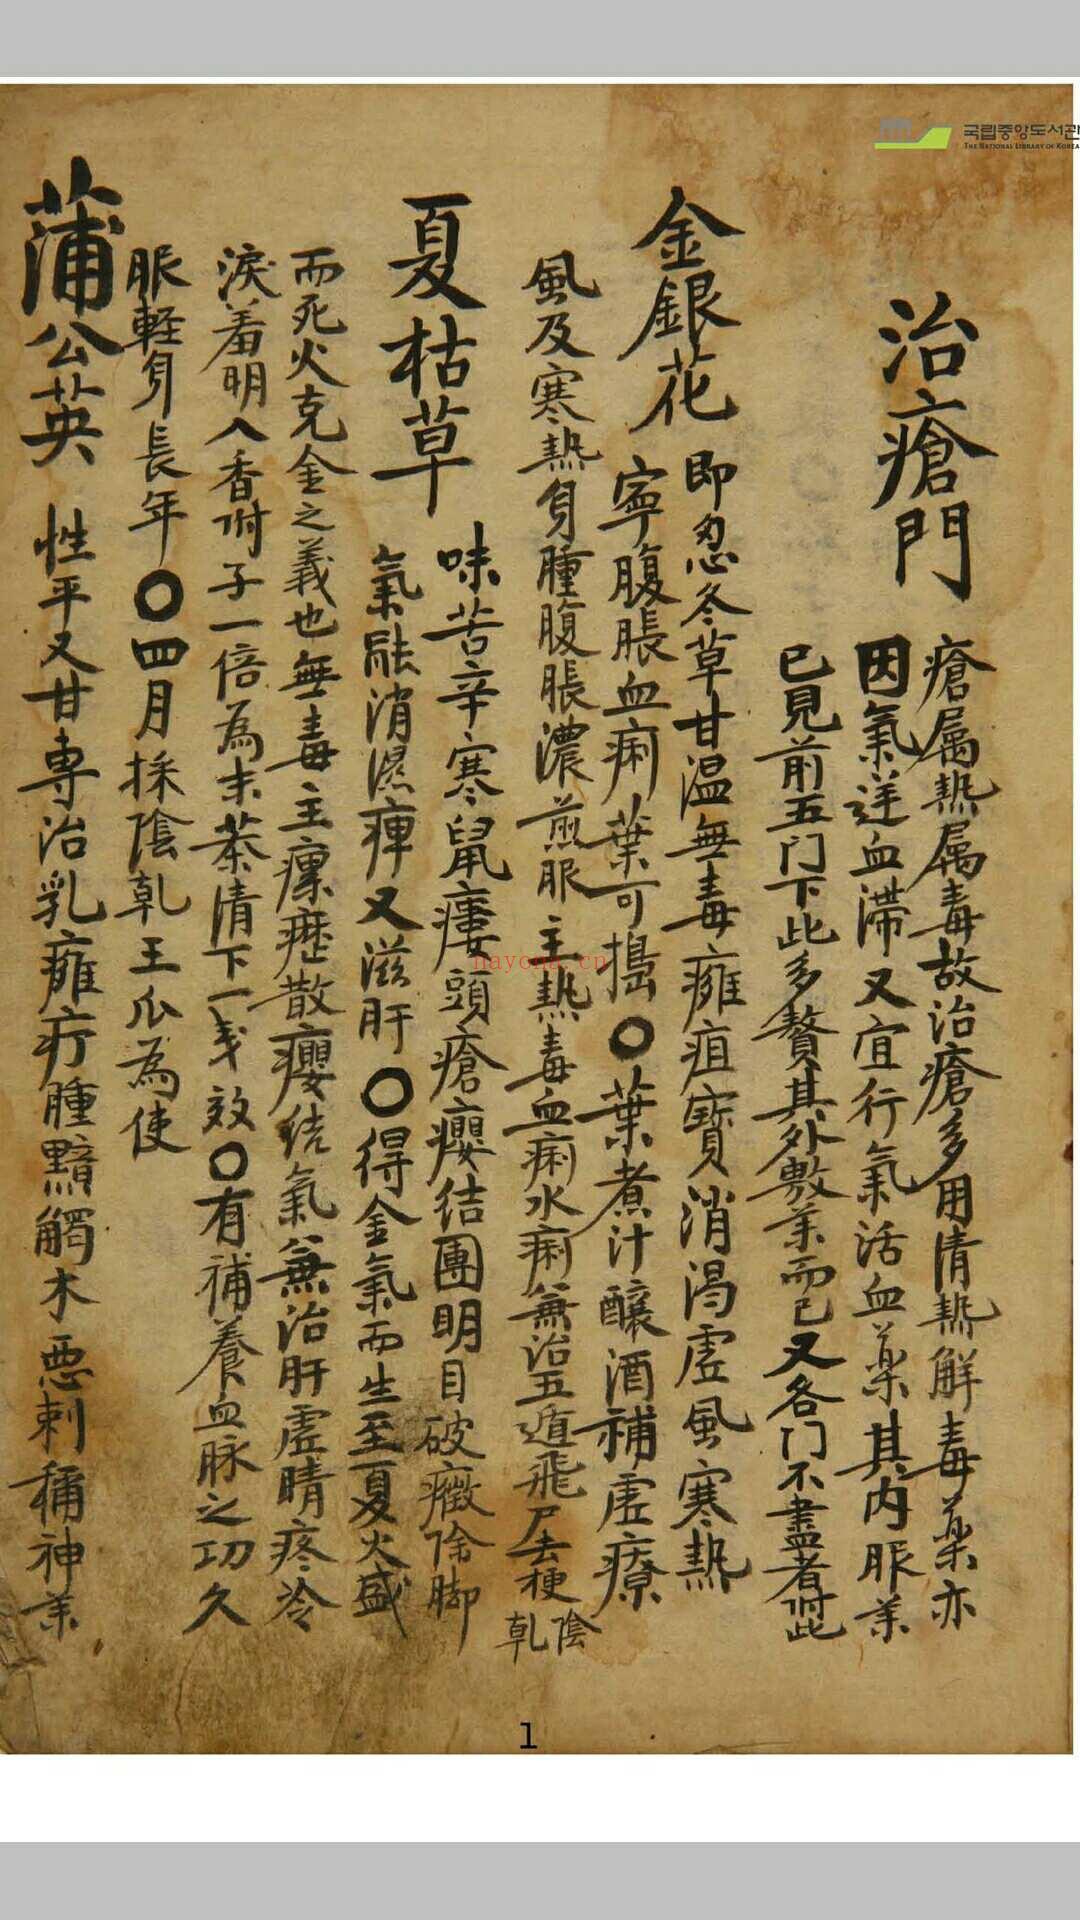 국립중앙도서관
THE NATIONAL LIBRARY OF KOREA
治瘡門
瘡属熱属毒故治瘡多用清熱解毒薬亦
因氣逆血滞又宜行氣活血薬其内服薬
已見前五门下此多贅其外敷薬而已又各门不盡者附此
金銀花
即忍冬草甘温無毒癰疽寶消渴虚風寒熱
寧腹脹血痢葉可搗〇葉煮汁釀酒補虚療
風及寒熱身腫腹脹濃煎服主熱毒血痢水痢兼治五遁飛尸去梗陰乹
夏枯草
味苦辛寒鼠瘻頭瘡癭結團明目破癥除脚
氣融消濕痺又滋肝〇得金氣而生至夏火盛
而死火克金之義也無毒主瘰癧散癭结氣兼治肝虚睛疼冷
淚羞明入香附子一倍為末茶清下一戔效〇有補養血脉之功久
服軽身長年〇四月採陰乹王瓜為使
蒲公英
性平又甘専治乳癰疔腫黯觸木惡刺稱神薬
nayona.cn
1